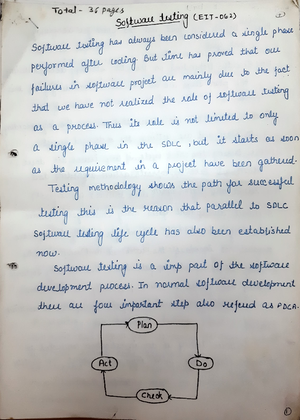 Total - 36 pages
Software testing (EIT-062)
Software testing has always been considered a single phase
performed after coding. But time has proved that our
failures in software project are mainly due to the fact
that we have not realized the role of software testing
as a process. Thus its role is not limited to only
a single phase in the SDLC, but it starts as soon
as the requirement in a project have been gathered.
Testing methodology shows the path for successful
testing this is the reason that parallel to SDLC
Software testing life cycle has also been established
now.
Software testing is a imp part of the software
development process. In normal software development
there are four important step also refered as PDCA.
Plan
Act
Do
Check